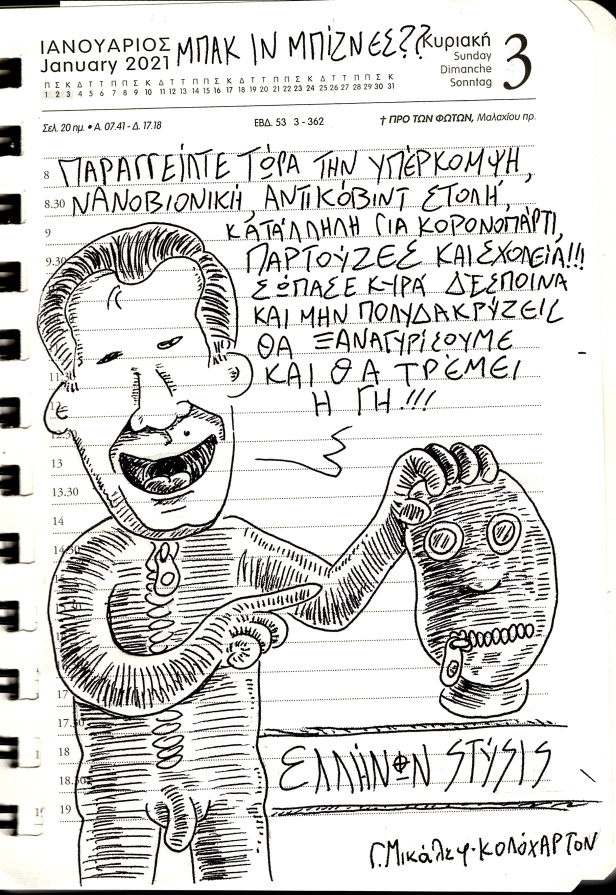 ΙΑΝΟΥΑΡΙΟΣ ΜΠΑΚ ΙΝ ΜΠΙΖΝΕΣ?? Κυριακή 3
January 2021 Sunday
Dimanche
Sonntag
Π Σ Κ Δ Τ Τ Π Π Σ Κ Δ Τ Τ Π Π Σ Κ Δ Τ Τ Π Π Σ Κ Δ Τ Τ Π Π Σ Κ
1 2 3 4 5 6 7 8 9 10 11 12 13 14 15 16 17 18 19 20 21 22 23 24 25 26 27 28 29 30 31
Σελ. 20 ημ. • Α. 07.41 - Δ. 17.18 ΕΒΔ. 53 3 - 362 † ΠΡΟ ΤΩΝ ΦΩΤΩΝ, Μαλαχίου πρ.
8 ΠΑΡΑΓΓΕΙΛΤΕ ΤΏΡΑ ΤΗΝ ΥΠΈΡΚΟΜΨΗ,
8.30 ΝΑΝΟΒΙΟΝΙΚΉ, ΑΝΤΙΚΌΒΙΝΤ ΣΤΟΛΉ,
9 ΚΑΤΆΛΛΗΛΗ ΓΙΑ ΚΟΡΟΝΟΠΆΡΤΙ,
9.30 ΠΑΡΤΟΎΖΕΣ ΚΑΙ ΣΧΟΛΕΊΑ!!!
ΣΏΠΑΣΕ ΚΥΡΆ ΔΈΣΠΟΙΝΑ
ΚΑΙ ΜΗΝ ΠΟΛΥΔΑΚΡΎΖΕΙΣ
ΘΑ ΞΑΝΑΓΥΡΊΣΟΥΜΕ
ΚΑΙ ΘΑ ΤΡΈΜΕΙ
Η ΓΗ!!!
12.30
13
13.30
14
17
17.30
18 ΕΛΛΉΝΩΝ STÝSIS
18.30
19
Γ. Μικάλεφ-ΚΟΛΌΧΑΡΤΟΝ